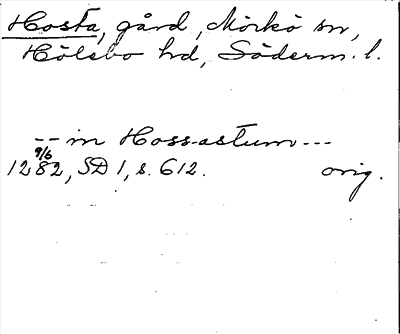 Hosta, gård, Mörkö sn,
Hölebo hd, Söderm. l.
-- in Hossastum ---
9/6
1282, SD 1, s. 612. orig.